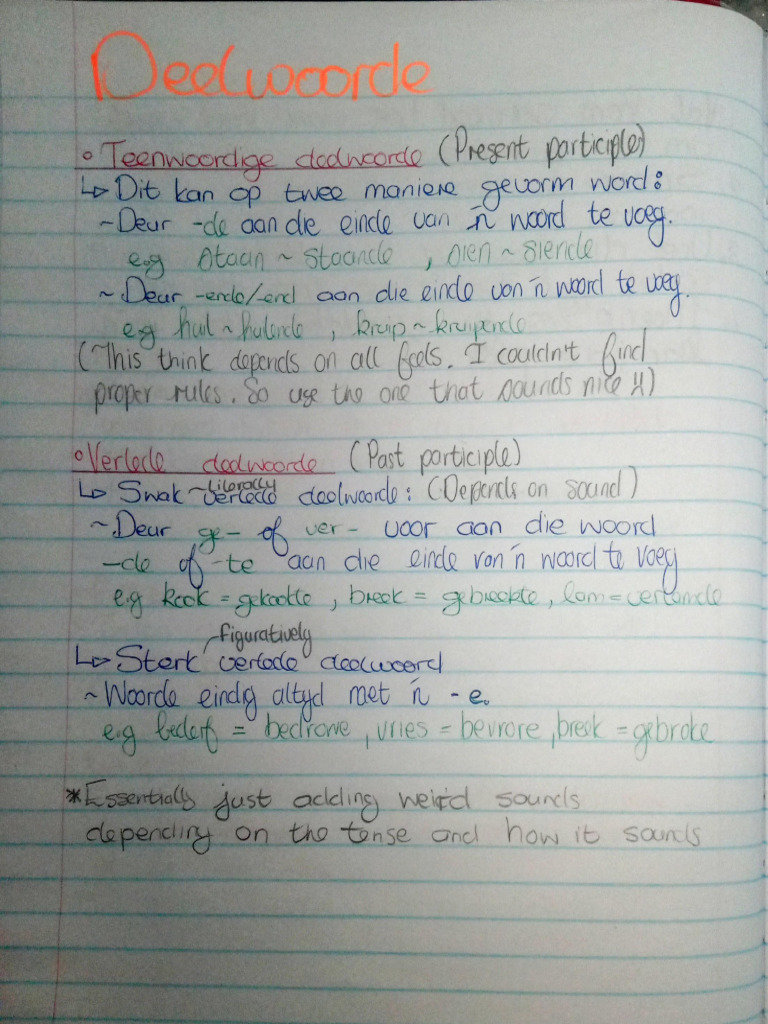 Deelwoorde
Teenwoordige deelwoorde (Present participle)
↳ Dit kan op twee maniere gevorm word:
~ Deur -de aan die einde van 'n woord te voeg.
e.g staan ~ staande , sien ~ siende
~ Deur -ende/-end aan die einde van 'n woord te voeg.
e.g huil ~ hulende , kruip ~ kruipende
(~This think depends on all feels. I couldn't find
proper rules. So use the one that sounds nice
Verlede deelwoorde (Past participle)
~Literally
↳ Swak verlede deelwoorde: (Depends on sound)
~Deur ge- of ver- voor aan die woord
-de of -te aan die einde van 'n woord te voeg
e.g kook = gekookte , breek = gebreekte, lam = verlamde
figuratively
↳ Sterk verlede deelwoord
~ Woorde eindig altyd met 'n -e.
e.g bederf = bedrowe , vries = bevrore , breek = gebroke
*Essentially just adding weird sounds
depending on the tense and how it sounds